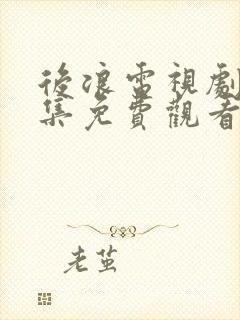 後浪電視劇
集免費觀看
老茧